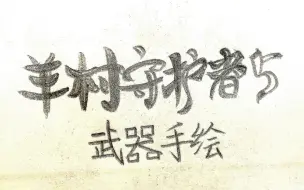 羊村守护者5
武器手绘